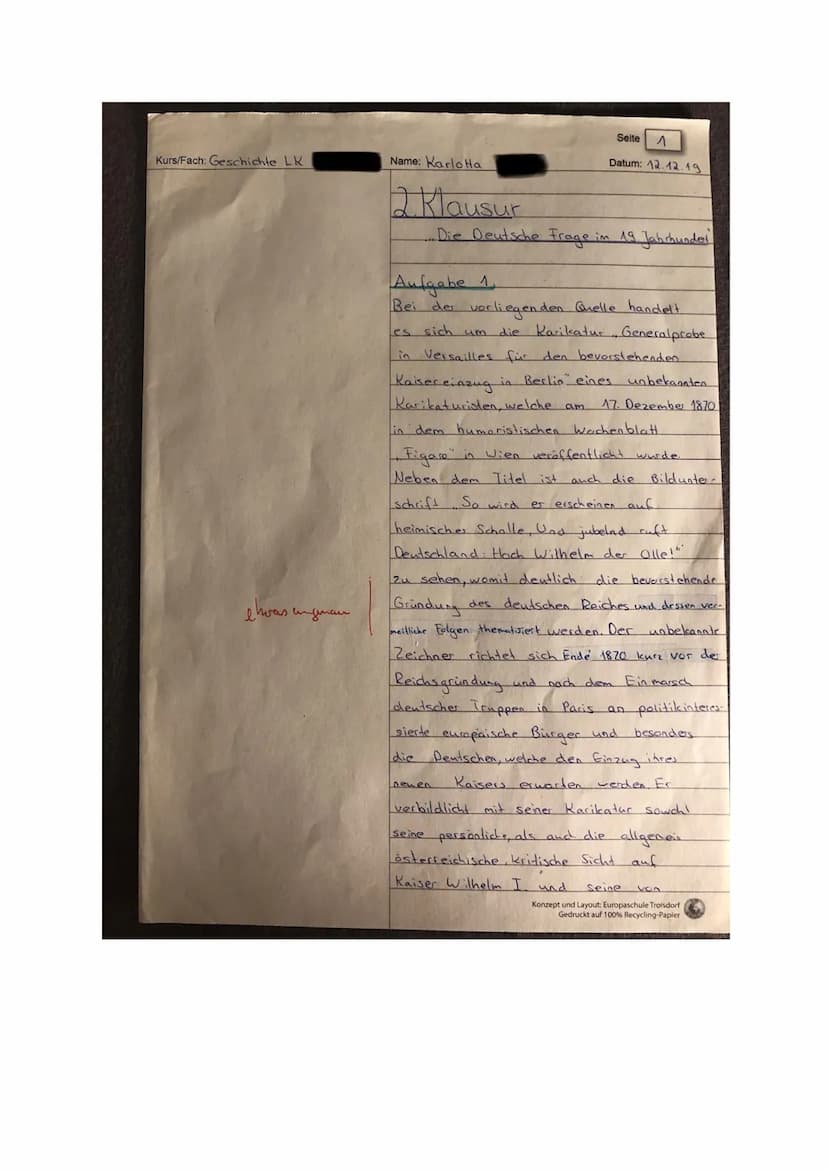 Seite 1
Kurs/Fach: Geschichte LK Name: Karlotta Datum: 12.12.19
2. Klausur
„Die Deutsche Frage im 19 Jahrhundert
Aufgabe 1
Bei der vorliegenden Quelle handelt
es sich um die Karikatur „Generalprobe
in Versailles für den bevorstehenden
Kaisereinzug in Berlin“ eines unbekannten
Karikaturisten, welche am 17. Dezember 1870
in dem humoristischen Wochenblatt
„Figaro“ in Wien veröffentlicht wurde.
Neben dem Titel ist auch die Bildunter-
schrift „So wird er erscheinen auf
heimischer Scholle, Und jubelnd ruft
Deutschland: Hoch Wilhelm der Olle!“
zu sehen, womit deutlich die bevorstehende
etwas ungenau
Gründung des deutschen Reiches und dessen ver-
meitliche Folgen thematisiert werden. Der unbekannte
Zeichner richtet sich Ende 1870 kurz vor der
Reichsgründung und nach dem Einmarsch
deutscher Truppen in Paris an politikinteres-
sierte europäische Bürger und besonders
die Deutschen, welche den Einzug ihres
neuen Kaisers erwarten werden. Er
verbildlicht mit seiner Karikatur sowohl
seine persönliche, als auch die allgemein
österreichische, kritische Sicht auf
Kaiser Wilhelm I. und seine von
Konzept und Layout: Europaschule Troisdorf
Gedruckt auf 100% Recycling-Papier